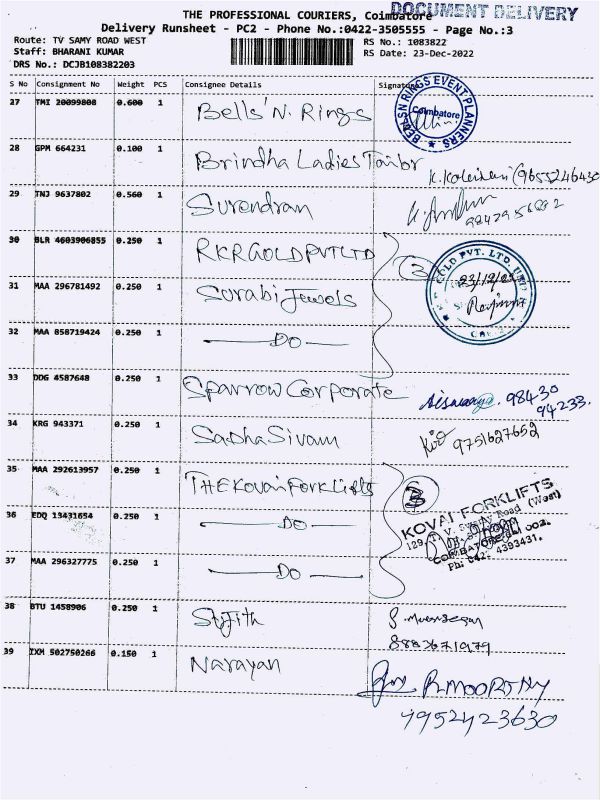 DOCUMENT DELIVERY
THE PROFESSIONAL COURIERS, Coimbatore
Delivery Runsheet - PC2 - Phone No.:0422-3505555 - Page No.:3
Route: TV SAMY ROAD WEST
Staff: BHARANI KUMAR
DRS No.: DCJB108382203
RS No.: 1083822
RS Date: 23-Dec-2022
S No Consignment No Weight PCS Consignee Details Signature
27 TMI 20099808 0.600 1 Bells'N. Rings
BELLS N RINGS EVENT PLANNERS
Coimbatore
28 GPM 664231 0.100 1 Brindha Ladies Tailor
29 TNJ 9637802 0.560 1 Surendran
30 BLR 4603906855 0.250 1 RKR GOLD PVT LTD
3
GOLD PVT. LTD. UNIT
31 MAA 296781492 0.250 1 Surabi Jewels
32 MAA 858719424 0.250 1 DO
33 DDG 4587648 0.250 1 Sparrow Corporate
98430
94233.
34 KRG 943371 0.250 1 SaDha Sivam
9751627652
35 MAA 292613957 0.250 1 THE Kovai Fork Lifts
3
KOVAI FORKLIFTS
36 EDQ 13431654 0.250 1 DO
37 MAA 296327775 0.250 1 DO
38 BTU 1458906 0.250 1 Sijith
39 IXM 502750266 0.150 1 Narayan
R.MOORTHY
9952423630